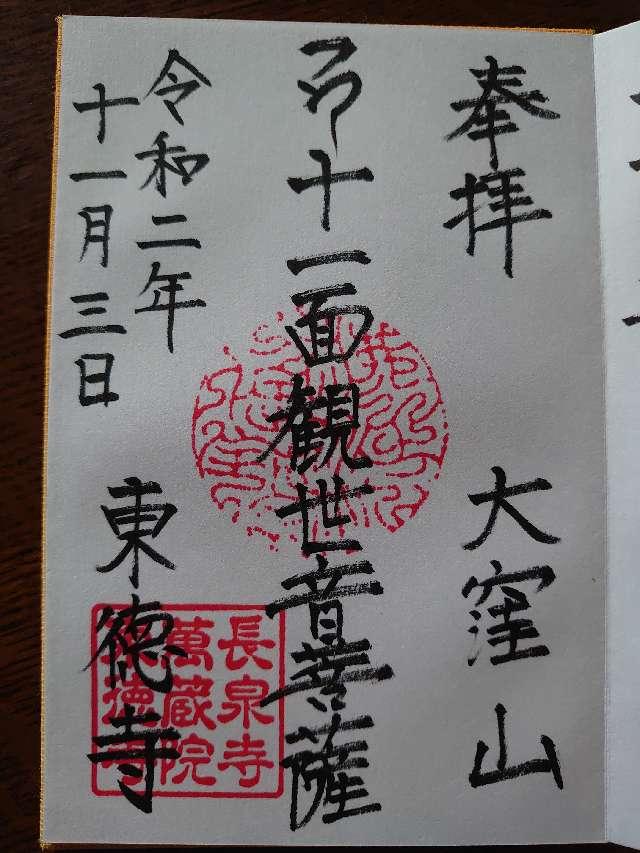 奉拝
大窪山
十一面観世音菩薩
令和二年
十一月三日
東徳寺
長泉寺
萬蔵院
東徳寺